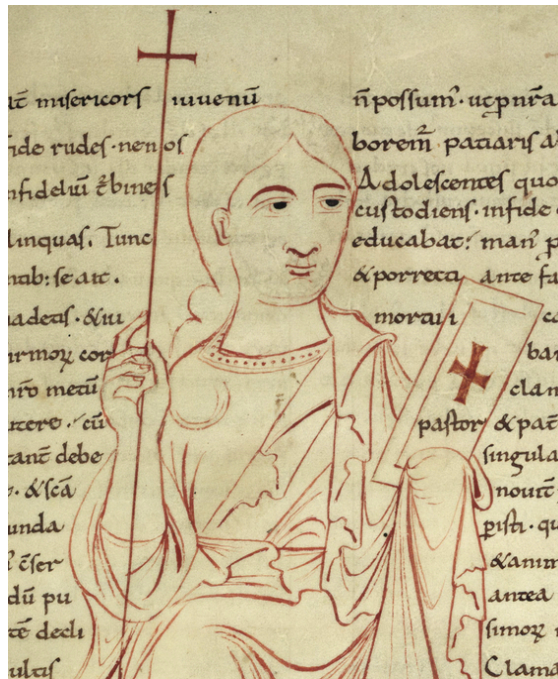 misericors iuuenū
fide rudes · ne nos
infideliū
linquas. Tunc
ntib; se ait ·
adetis · & iu
irmorꝝ cor
nr̄o metū
utere · cū
tant debe
· & sc̄a
unda
ser
dū pu
tē decli
ultis
n̄ possum᷒ · ut ꝑ nr̄a
patiaris a
Adolescentes quo
custodiens · infide
educabat: man᷒ p
& porrecti ante fa
mortui ca
ban
clam
pastor & pat̄
singula
nouit
ꝑisti · qu
& anim
antea
simorꝝ
Clama